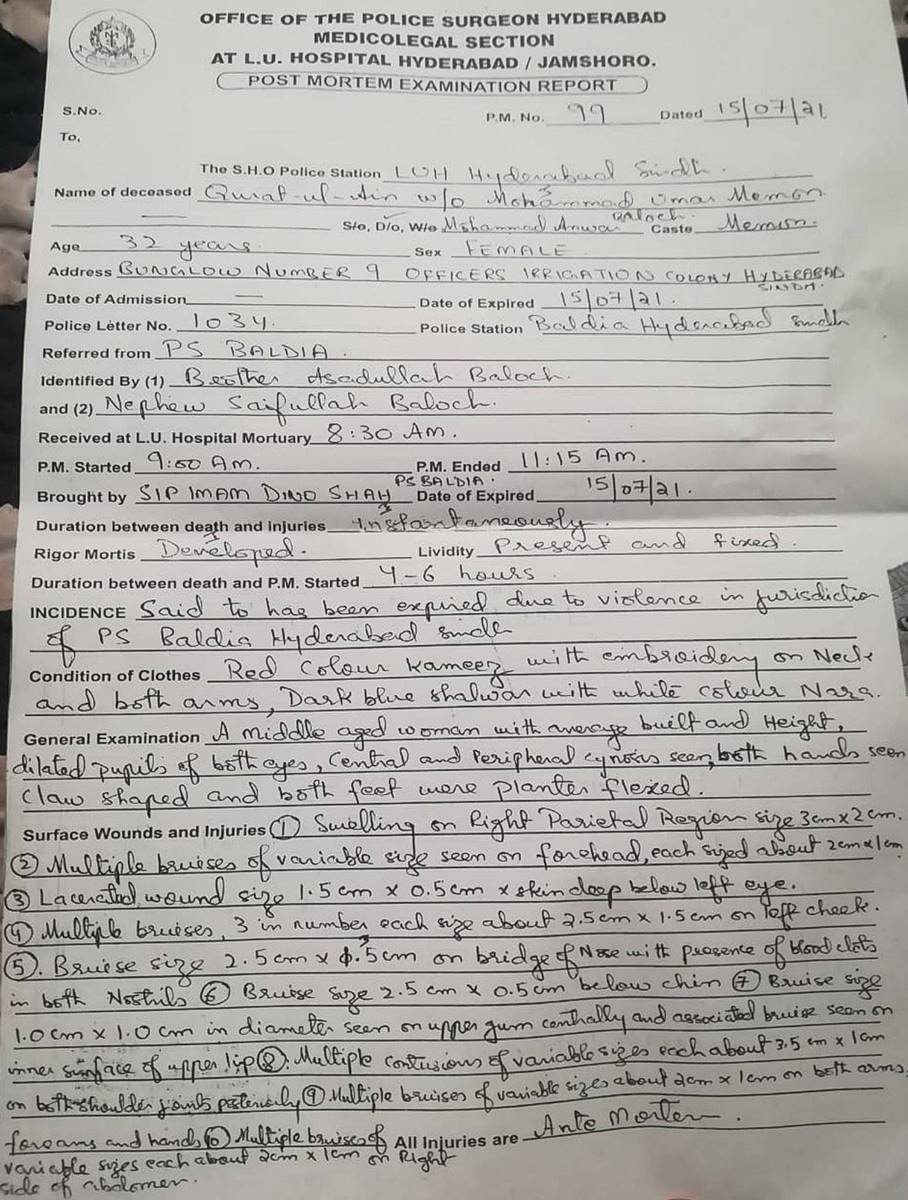 OFFICE OF THE POLICE SURGEON HYDERABAD
MEDICOLEGAL SECTION
AT L.U. HOSPITAL HYDERABAD / JAMSHORO.
POST MORTEM EXAMINATION REPORT
S.No.
P.M. No. 99 Dated 15/07/21
To,
The S.H.O Police Station LUH Hyderabad Sindh.
Name of deceased Qurat-ul-Ain w/o Mohammad Umar Memon
S/o, D/o, W/o Mohammad Anwar Baloch. Caste Memon.
Age 32 years. Sex FEMALE
Address BUNGLOW NUMBER 9 OFFICERS IRRIGATION COLONY HYDERABAD SINDH.
Date of Admission — Date of Expired 15/07/21.
Police Letter No. 1034. Police Station Baldia Hyderabad Sindh
Referred from PS BALDIA.
Identified By (1) Brother Asadullah Baloch.
and (2) Nephew Saifullah Baloch.
Received at L.U. Hospital Mortuary 8:30 Am.
P.M. Started 9:00 Am. P.M. Ended 11:15 Am.
Brought by SIP IMAM DINO SHAH PS BALDIA. Date of Expired 15/07/21.
Duration between death and injuries Instantaneously.
Rigor Mortis Developed. Lividity Present and fixed.
Duration between death and P.M. Started 4-6 hours
INCIDENCE Said to has been expired due to violence in jurisdiction
of PS Baldia Hyderabad Sindh
Condition of Clothes Red Colour Kameez with embroidery on Neck
and both arms, Dark blue shalwar with white colour Nara.
General Examination A middle aged woman with average built and Height,
dilated pupils of both eyes, Central and Peripheral cynosis seen, both hands seen
Claw shaped and both feet were planter flexed.
Surface Wounds and Injuries (1) Swelling on Right Parietal Region size 3cm x 2cm.
(2) Multiple bruises of variable size seen on forehead, each sized about 2cm x 1cm
(3) Lacerated wound size 1.5cm x 0.5cm x skin deep below left eye.
(4) Multiple bruises, 3 in number each size about 2.5cm x 1.5cm on left cheek.
(5). Bruise size 2.5cm x .5cm on bridge of Nose with presence of blood clots
in both Nostrils (6) Bruise size 2.5 cm x 0.5cm below chin (7) Bruise size
1.0cm x 1.0cm in diameter seen on upper gum centrally and associated bruise seen on
inner surface of upper lip (8). Multiple contusions of variable sizes each about 3.5 cm x 1cm
on both shoulder joints posteriorly (9) Multiple bruises of variable sizes about 2cm x 1cm on both arms,
forearms and hands (10) Multiple bruises of All Injuries are Ante Mortem.
variable sizes each about 2cm x 1cm on Right
side of abdomen.